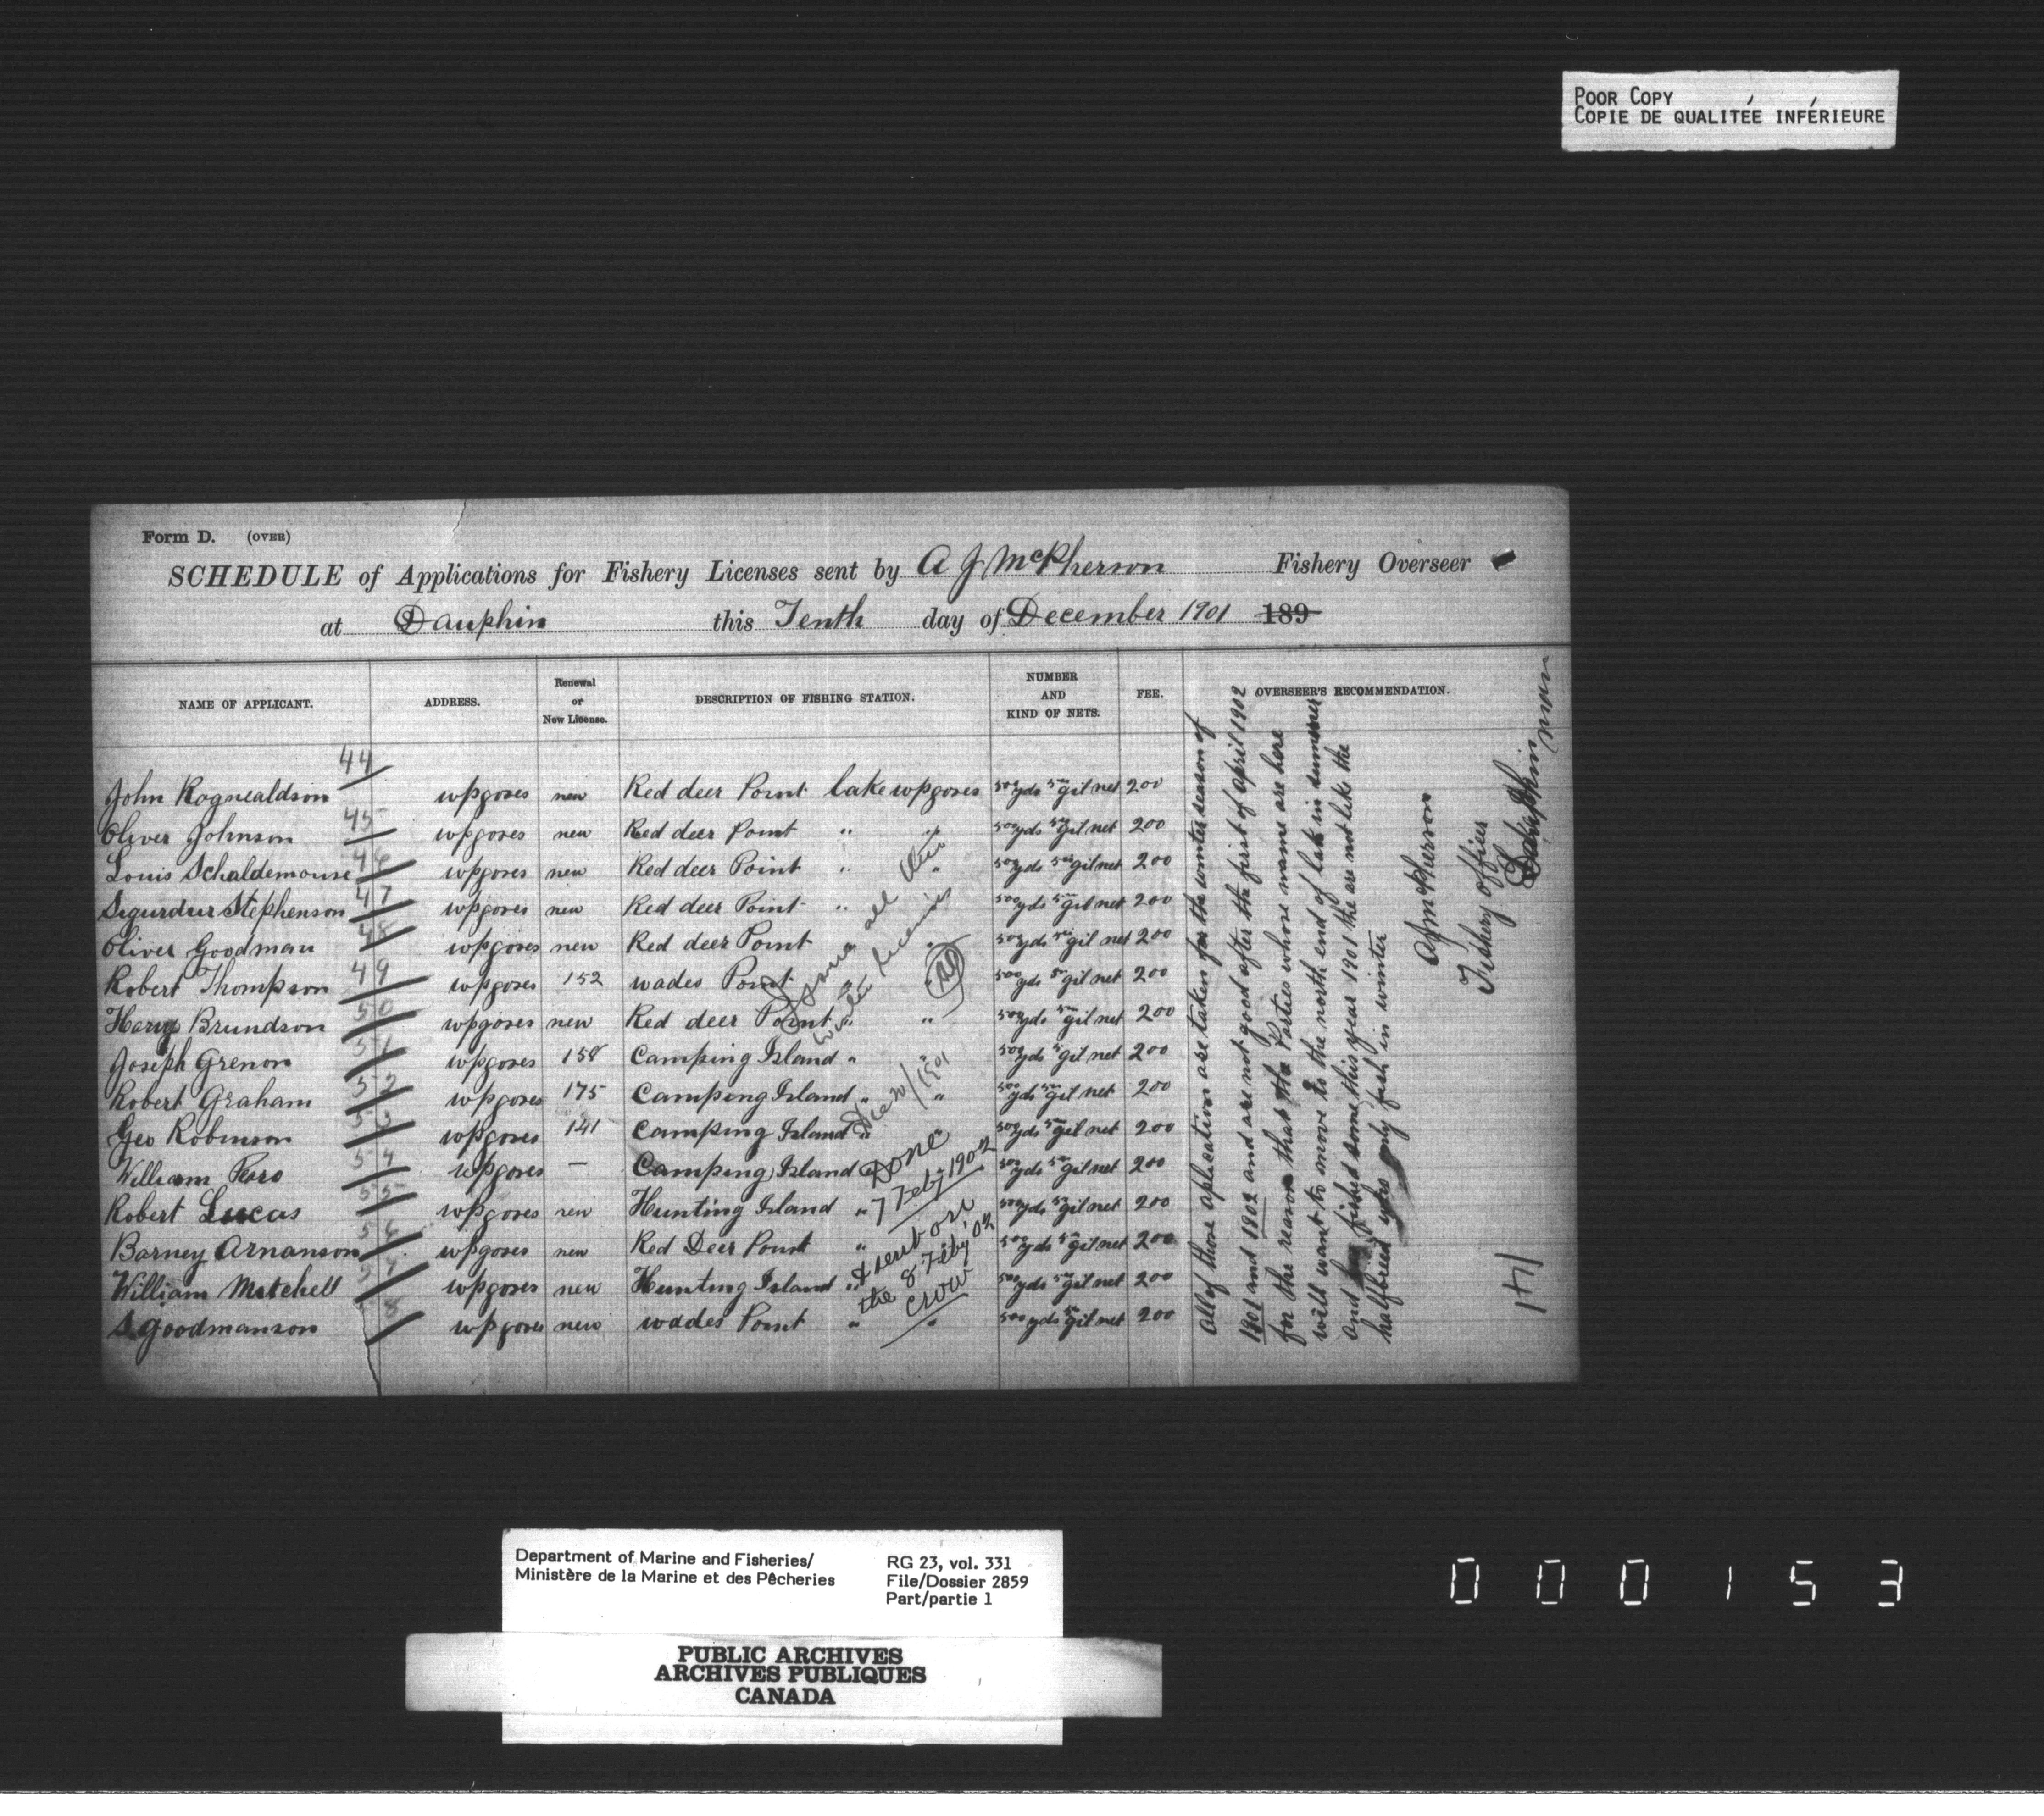 POOR COPY
COPIE DE QUALITÉE INFÉRIEURE
Form D. (OVER)
SCHEDULE of Applications for Fishery Licenses sent by A J McPherson Fishery Overseer
at Dauphin this Tenth day of December 1901 189
NAME OF APPLICANT. ADDRESS. Renewal or New License. DESCRIPTION OF FISHING STATION. NUMBER AND KIND OF NETS. FEE. OVERSEER'S RECOMMENDATION.
44
John Rognealdson wpgoses new Red deer Point lake wpgoses 500 yds 5 in gil net 200
45
Oliver Johnson wpgoses new Red deer Point " " 500 yds 5 in gil net 200
46
Louis Schaldemouse wpgoses new Red deer Point " " 500 yds 5 in gil net 200
47
Sigurdur Stephenson wpgoses new Red deer Point " 500 yds 5 in gil net 200
48
Oliver Goodman wpgoses new Red deer Point " 500 yds 5 in gil net 200
49
Robert Thompson wpgoses 152 wades Point " " 500 yds 5 in gil net 200
50
Harry Brundson wpgoses new Red deer Point " " 500 yds 5 in gil net 200
51
Joseph Grenon wpgoses 158 Camping Island " " 500 yds 5 gil net 200
52
Robert Graham wpgoses 175 Camping Island " " 500 yds 5 in gil net 200
53
Geo Robinson wpgoses 141 Camping Island " " 500 yds 5 in gil net 200
54
William Paro wpgoses — Camping Island " 500 yds 5 in gil net 200
55
Robert Lucas wpgoses new Hunting Island " 500 yds 5 in gil net 200
56
Barney Arnanson wpgoses new Red Deer Point " " 500 yds 5 in gil net 200
57
William Mitchell wpgoses new Hunting Island " 500 yds 5 in gil net 200
58
S goodmanson wpgoses new wades Point " " 500 yds 5 in gil net 200
all
winter licenses
1901
Done
7 Feby 1902
& sent on
the 8 Feby '02
CROW
All of those aplication are taken for the winter season of
1901 and 1902 and are not good after the first of april 1902
for the reason that the Parties whose name are here
will want to move to the north end of lak in summer
and fished some this year 1901 the are not like the
halfbreed who only fish in winter
A J McPherson
Fishery officer
Dauphin
man
141
Department of Marine and Fisheries/
Ministère de la Marine et des Pêcheries
RG 23, vol. 331
File/Dossier 2859
Part/partie 1
PUBLIC ARCHIVES
ARCHIVES PUBLIQUES
CANADA
000153